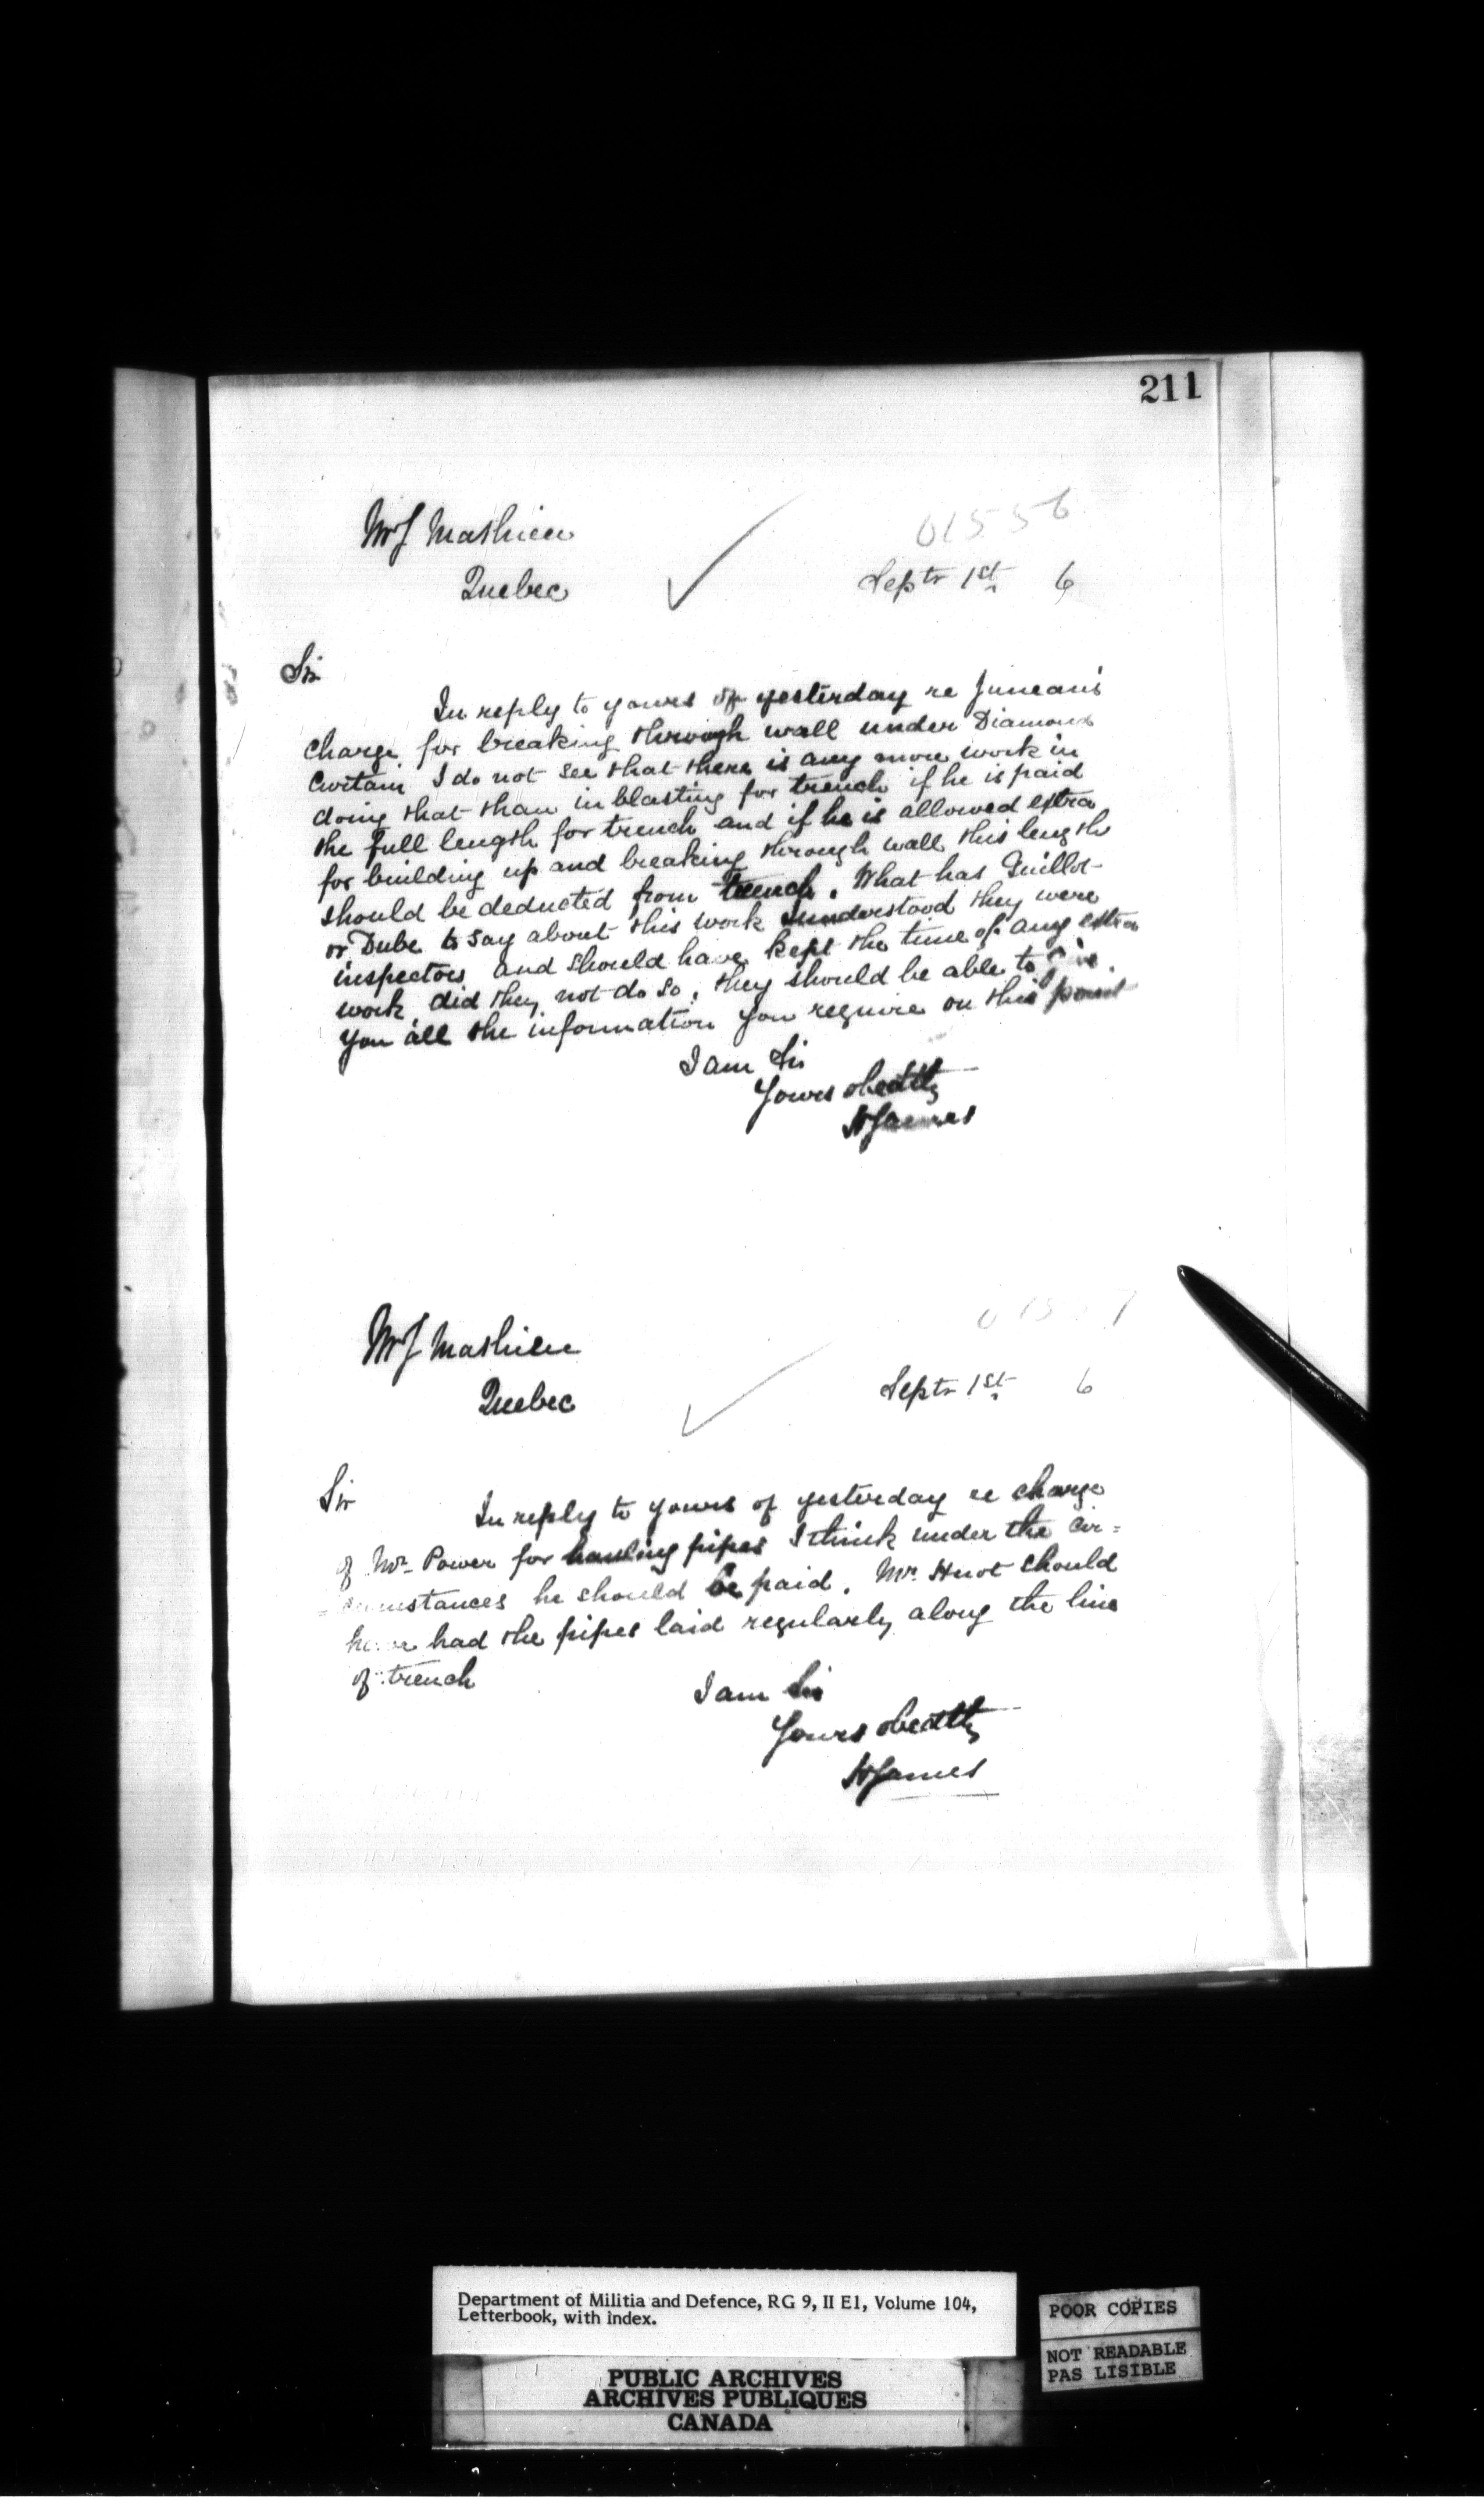 211
Mr J Mathieu
01556
Quebec
Septr 1st 6
Sir
In reply to yours of yesterday re Juneau's
charge for breaking through wall under Diamond
Curtain I do not see that there is any more work in
doing that than in blasting for trench if he is paid
the full length for trench and if he is allowed extra
for building up and breaking through wall this length
should be deducted from trench. What has Guillot
or Dube to say about this work I understood they were
inspectors and should have kept the time of any extra
work, did they not do so, they should be able to give
you all the information you require on this point
I am Sir
Yours obedtly
H James
Mr J Mathieu
Quebec
Septr 1st 6
Sir
In reply to yours of yesterday re charge
of Mr Power for hauling pipes I think under the cir=
=cumstances he should be paid. Mr. Huot should
have had the pipes laid regularly along the line
of trench
I am Sir
Yours obedtly
H James
Department of Militia and Defence, RG 9, II E1, Volume 104,
Letterbook, with index.
POOR COPIES
NOT READABLE
PAS LISIBLE
PUBLIC ARCHIVES
ARCHIVES PUBLIQUES
CANADA